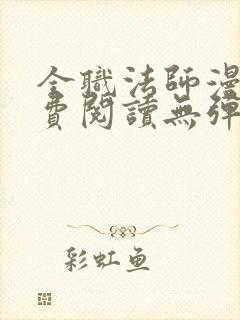 全職法師漫
費閱讀無彈
彩虹鱼